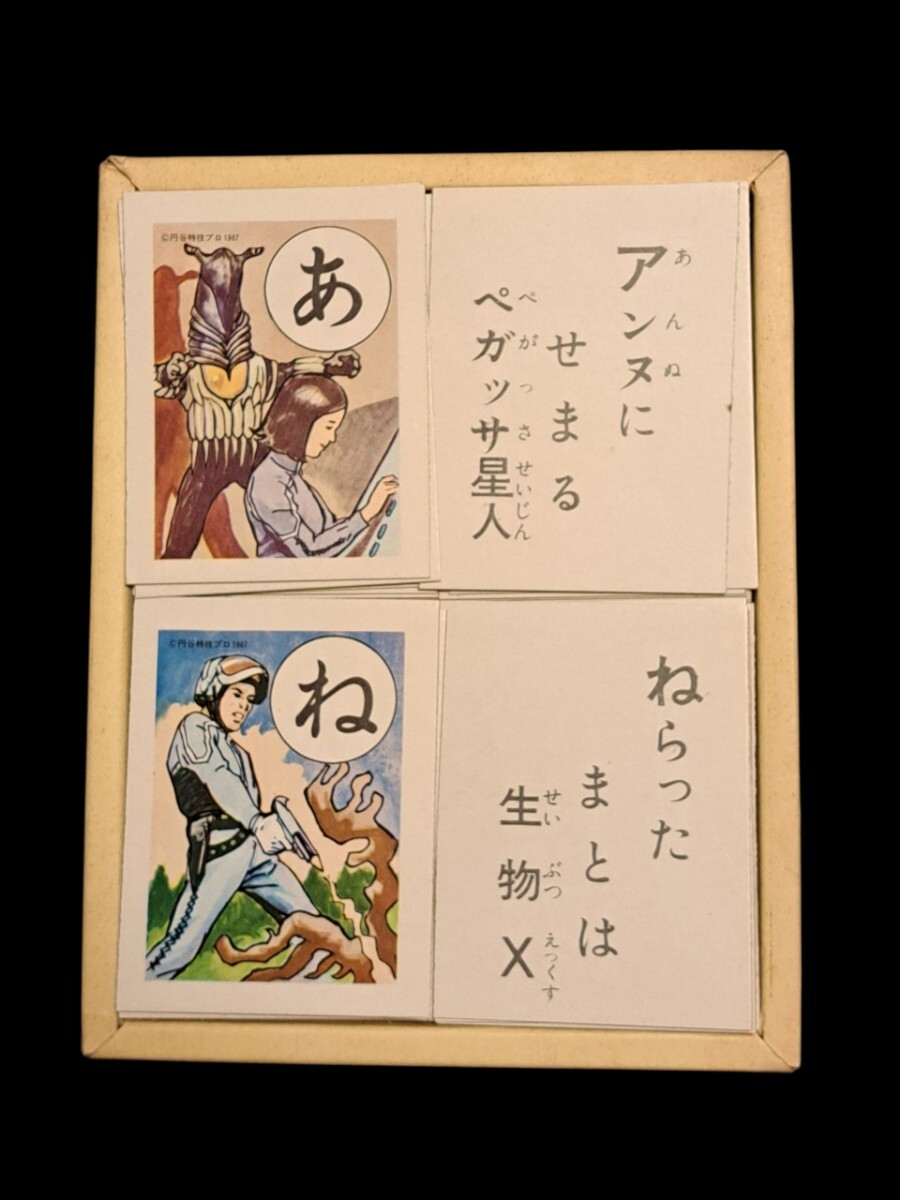 ©円谷特技プロ1967
あ
アンヌに
あんぬ
せまる
ペガッサ星人
ぺがっさせいじん
©円谷特技プロ1967
ね
ねらった
まとは
生物X
せいぶつえっくす